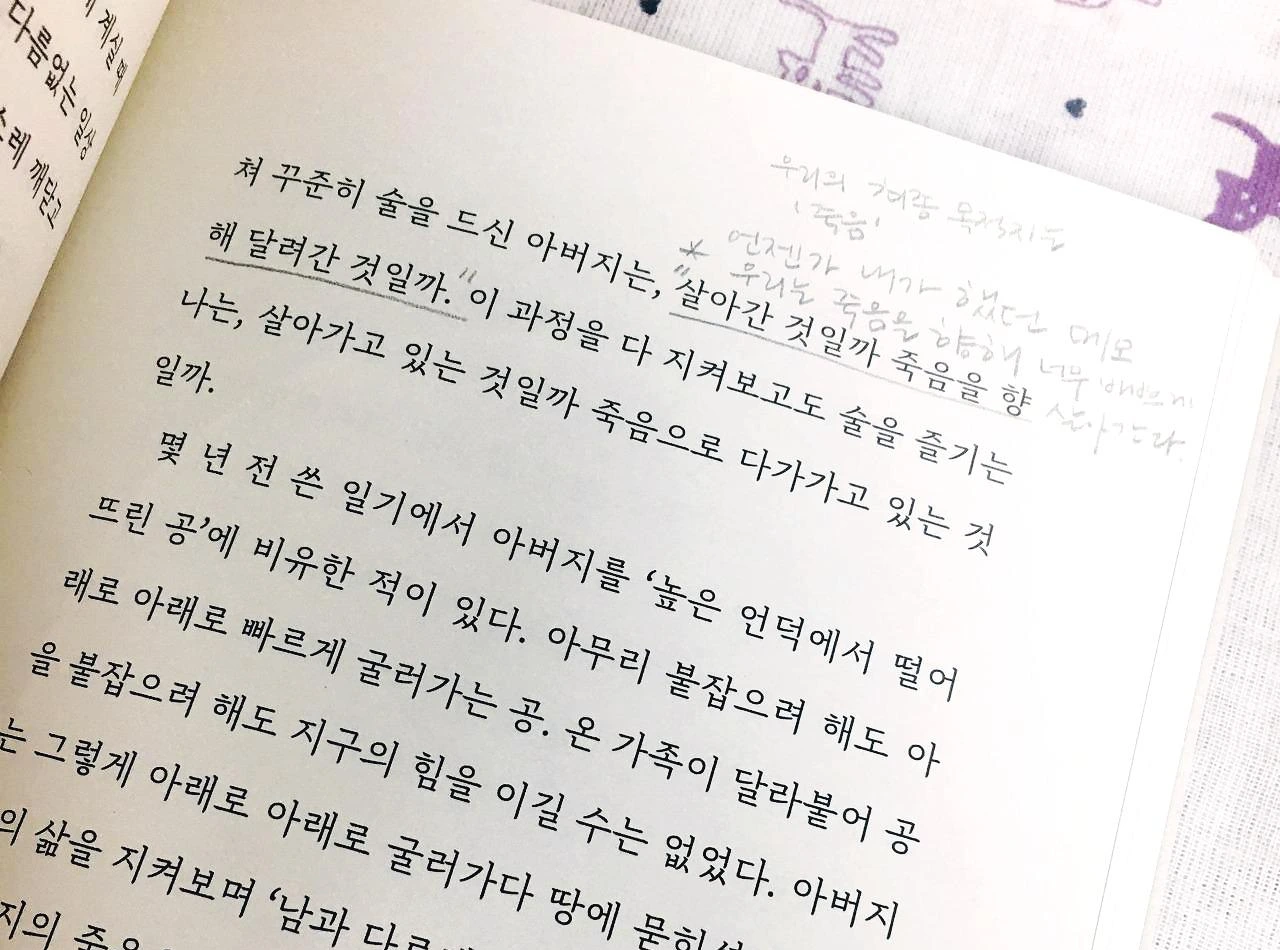 게 계실 때
다름없는 일상
스레 깨닫고
우리의 최종 목적지는
'죽음'
* 언젠가 내가 했던 메모
우리는 죽음을 향해 너무 바쁘게
살아간다.
쳐 꾸준히 술을 드신 아버지는, "살아간 것일까 죽음을 향
해 달려간 것일까." 이 과정을 다 지켜보고도 술을 즐기는
나는, 살아가고 있는 것일까 죽음으로 다가가고 있는 것
일까.
몇 년 전 쓴 일기에서 아버지를 ‘높은 언덕에서 떨어
뜨린 공’에 비유한 적이 있다. 아무리 붙잡으려 해도 아
래로 아래로 빠르게 굴러가는 공. 온 가족이 달라붙어 공
을 붙잡으려 해도 지구의 힘을 이길 수는 없었다. 아버지
는 그렇게 아래로 아래로 굴러가다 땅에
의 삶을 지켜보며 ‘남과
지의